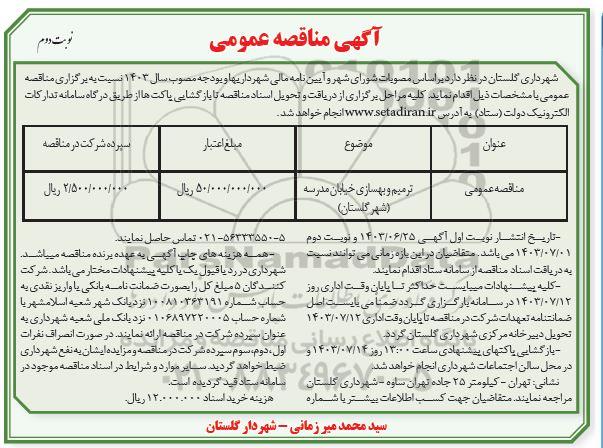 آگهی مناقصه عمومی
نوبت دوم
شهرداری گلستان در نظر دارد براساس مصوبات شورای شهر و آیین نامه مالی شهرداریها و بودجه مصوب سال ۱۴۰۳ نسبت به برگزاری مناقصه
عمومی با مشخصات ذیل اقدام نماید. کلیه مراحل برگزاری از دریافت و تحویل اسناد مناقصه تا بازگشایی پاکت ها از طریق درگاه سامانه تدارکات
الکترونیک دولت (ستاد) به آدرس www.setadiran.ir انجام خواهد شد.
عنوان موضوع مبلغ اعتبار سپرده شرکت در مناقصه
مناقصه عمومی ترمیم و بهسازی خیابان مدرسه ۵۰/۰۰۰/۰۰۰/۰۰۰ ریال ۲/۵۰۰/۰۰۰/۰۰۰ ریال
(شهر گلستان)
-تاریخ انتشار نوبت اول آگهی ۱۴۰۳/۰۶/۲۵ و نوبت دوم
۱۴۰۳/۰۷/۰۱ می باشد. متقاضیان در این بازه زمانی می توانند نسبت
به دریافت اسناد مناقصه از سامانه ستاد اقدام نمایند.
-کلیه پیشنهادات میبایست حداکثر تا پایان وقت اداری روز
۱۴۰۳/۰۷/۱۲ در سامانه بارگزاری گردد ضمنا می بایست اصل
ضمانتنامه تعهدات شرکت در مناقصه تا پایان وقت اداری ۱۴۰۳/۰۷/۱۲
تحویل دبیرخانه مرکزی شهرداری گلستان گردد.
-بازگشایی پاکتهای پیشنهادی ساعت ۱۳:۰۰ روز ۱۴۰۳/۰۷/۱۴ و
در محل سالن اجتماعات شهرداری انجام خواهد شد.
نشانی: تهران - کیلومتر ۲۵ جاده تهران ساوه - شهرداری گلستان
مراجعه نمایند. متقاضیان جهت کسب اطلاعات بیشتر با شماره
۵-۰۲۱-۵۶۳۳۳۵۵۰ تماس حاصل نمایند.
-همه هزینه های چاپ آگهی به عهده برنده مناقصه میباشد.
شهرداری در رد یا قبول یک یا کلیه پیشنهادات مختار می باشد. شرکت
کنندگان ۵ مبلغ کل را بصورت ضمانت نامه بانکی یا واریز نقدی به
حساب شماره ۱۰۰۸۱۰۳۶۳۱۹۱ نزد بانک شهر شعبه اسلامشهر یا
شماره حساب ۰۱۰۶۸۹۷۲۲۰۰۰۵ نزد بانک ملی شعبه شهرداری به
عنوان سپرده شرکت در مناقصه ارائه نمایند. در صورت انصراف نفرات
اول، دوم، سوم سپرده شرکت در مناقصه و مزایده ایشان به نفع شهرداری
ضبط خواهد گردید. سایر موارد و شرایط در اسناد مناقصه موجود در
سامانه ستاد قید گردیده است.
هزینه خرید اسناد ۱۲.۰۰۰.۰۰۰ ریال.
سید محمد میرزمانی - شهردار گلستان